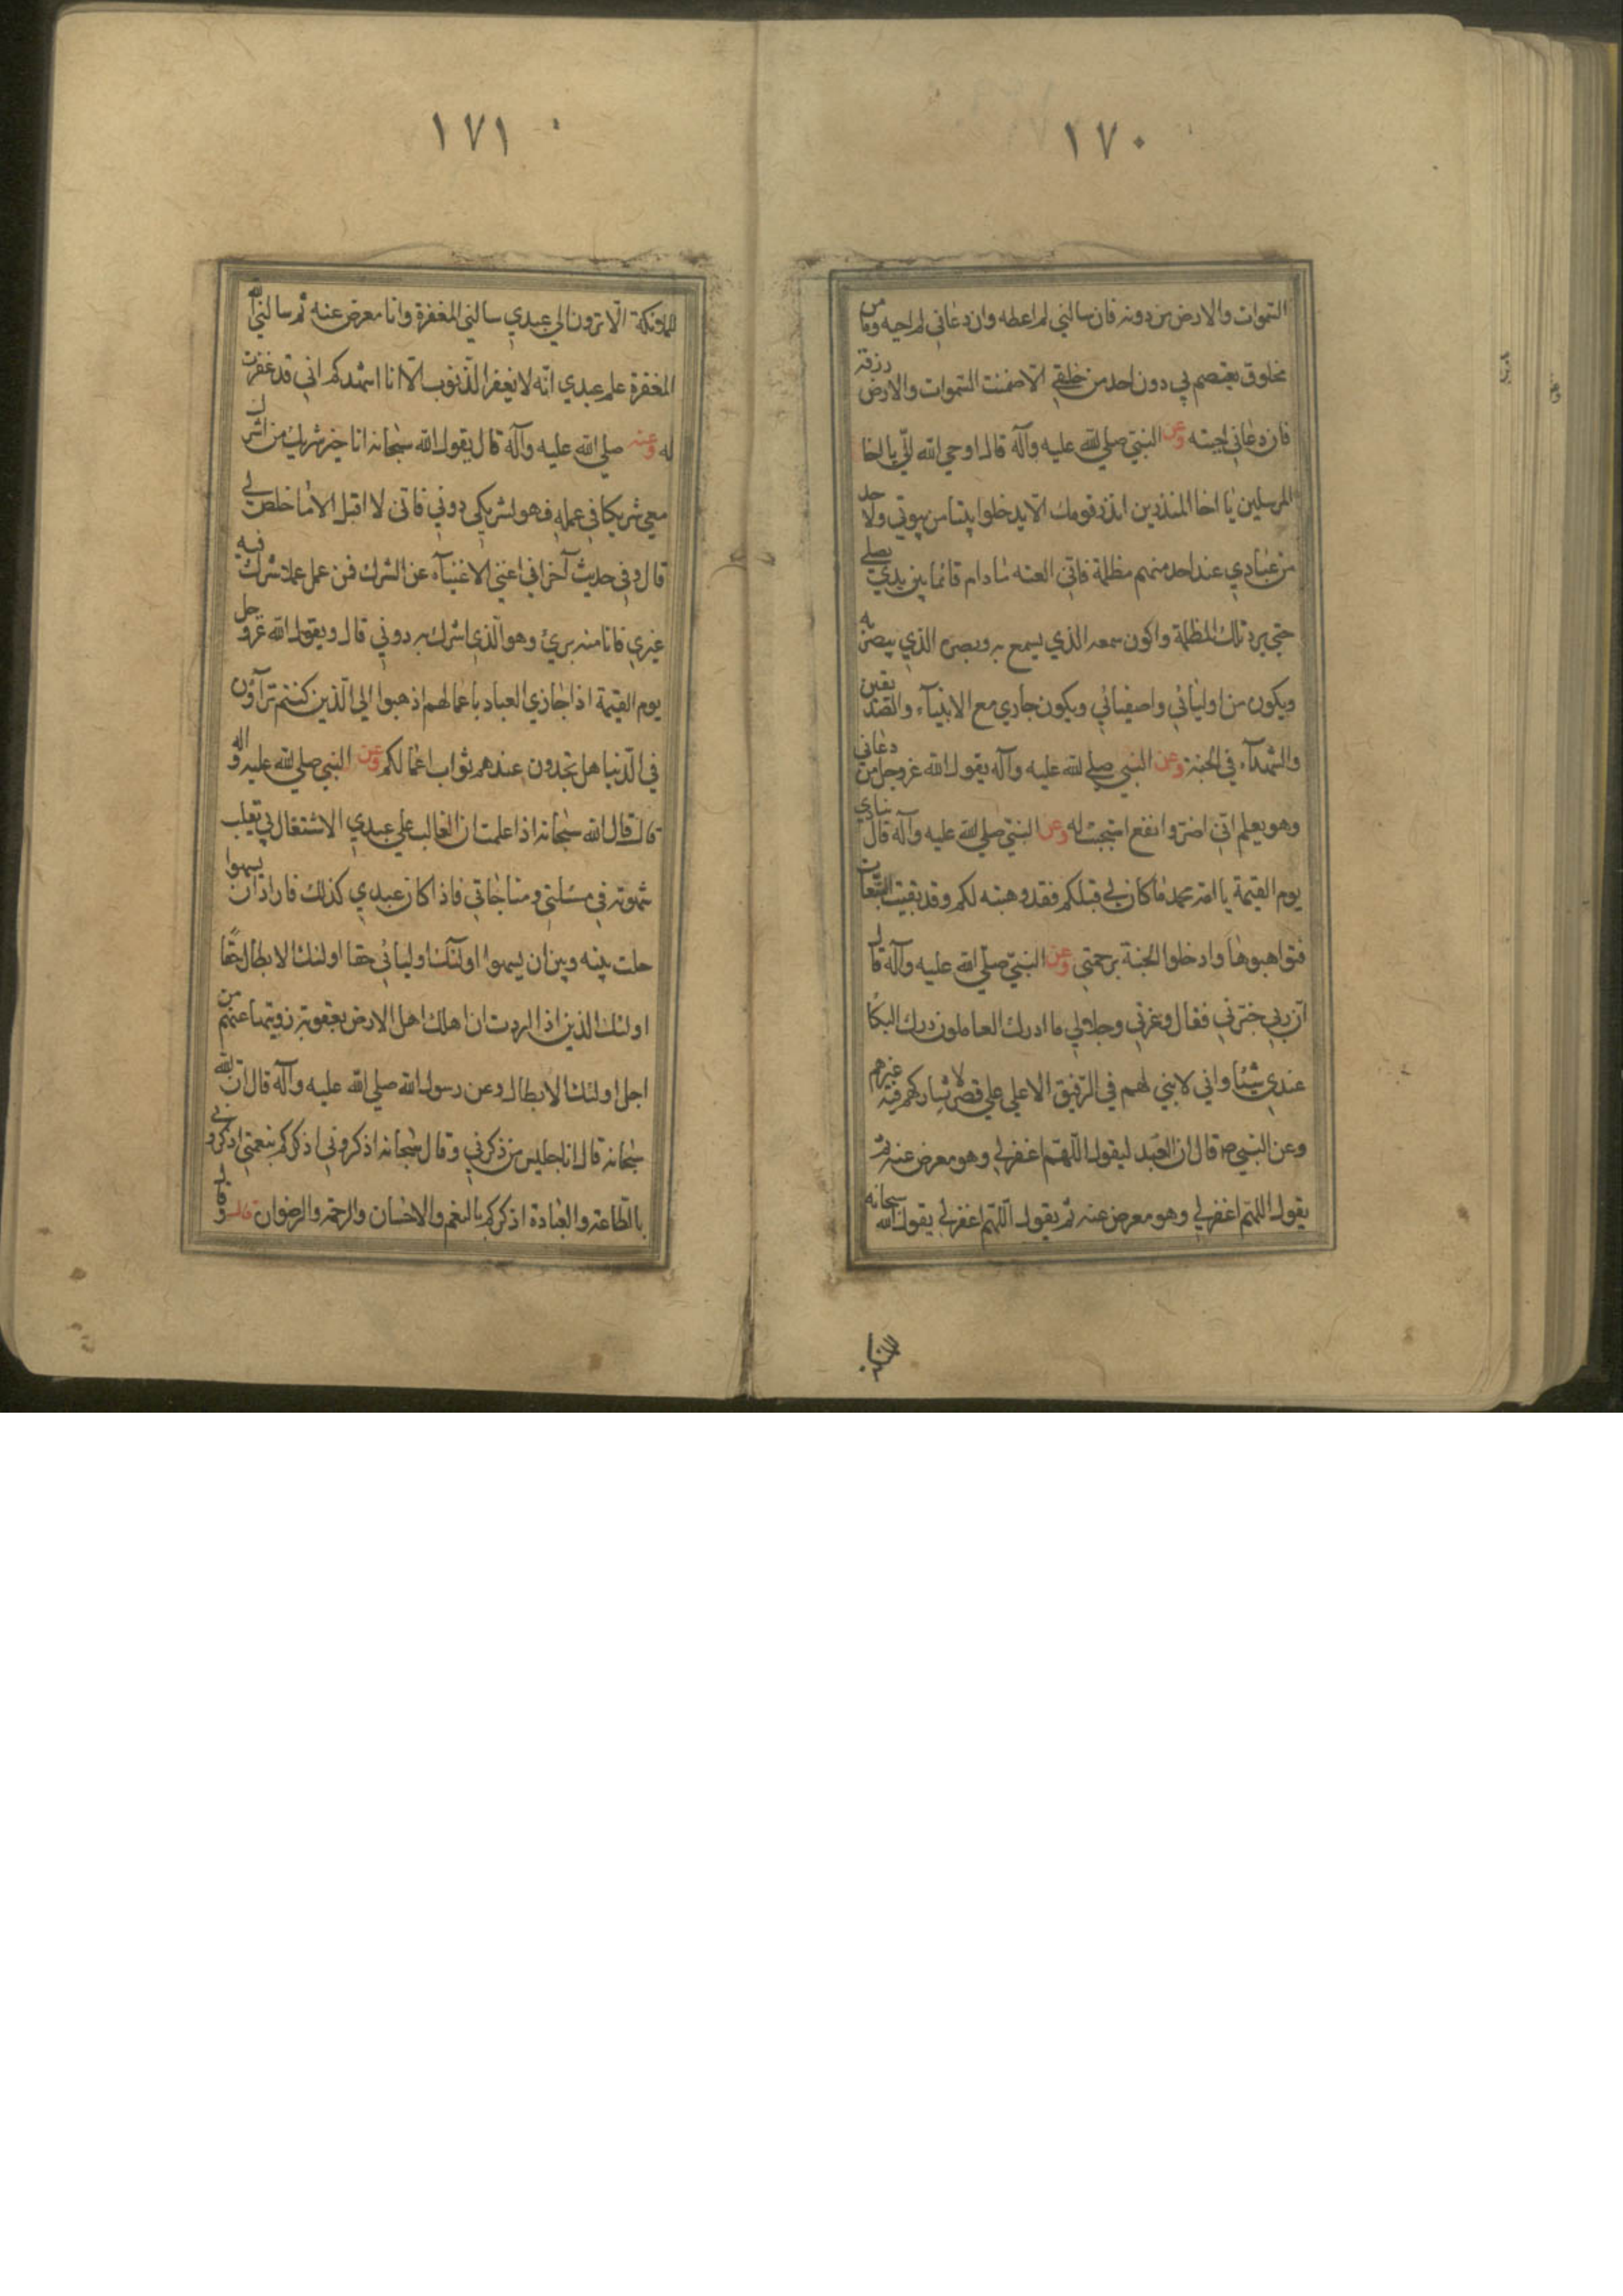 ١٧٠
السموات والارض من دونه فان سالني لم اعطه وان دعاني لم اجبه وما من
مخلوق يعتصم بي دون احد من خلقي الا ضمنت السموات والارض رزقه
فان دعاني اجبته وعن النبي صلي الله عليه وآله قال اوحي الله الي يا اخا
المرسلين يا اخا المنذرين انذر قومك الا يدخلوا بيتا من بيوتي ولاحد
من عبادي عند احد منهم مظلمة فاني العنه ما دام قائما بين يدي يصلي
حتي يرد تلك المظلمة واكون سمعه الذي يسمع به وبصره الذي يبصر به
ويكون من اوليائي واصفيائي ويكون جاري مع الانبياء والصديقين
والشهداء في الجنة وعن النبي صلي الله عليه وآله يقول الله عز وجل من دعاني
وهو يعلم اني اضر وانفع استجبت له وعن النبي صلي الله عليه وآله قال ينادي
يوم القيمة يا امة محمد ما كان لي قبلكم فقد وهبته لكم وقد بقيت التبعات
فتواهبوها وادخلوا الجنة برحمتي وعن النبي صلي الله عليه وآله قال
ان ربي خبرني فقال وعزتي وجلالي ما ادرك العاملون درك البكا
عندي شيئا واني لابني لهم في الرفيق الاعلي علي قصر لا يشاركهم فيه غيرهم
وعن النبي ص قال ان العبد ليقول اللهم اغفر لي وهو معرض عنه ثم
يقول اللهم اغفر لي وهو معرض عنه ثم يقول اللهم اغفر لي يقول الله سبحانه
١٧١
للملائكة الا ترون الي عبدي سالني المغفرة وانا معرض عنه ثم سالني
المغفرة علم عبدي انه لا يغفر الذنوب الا انا اشهدكم اني قد غفرت
له وعنه صلي الله عليه وآله قال يقول الله سبحانه انا خير شريك من اشرك
معي شريكا في عمله فهو لشريكي دوني فاني لا اقبل الا ما خلص لي
قال وفي حديث آخر اني اغني الاغنياء عن الشرك فمن عمل عملا شرك فيه
غيري فانا منه بريء وهو الذي اشرك به دوني قال ويقول الله عز وجل
يوم القيمة اذا جازي العباد باعمالهم اذهبوا الي الذين كنتم تراؤن
في الدنيا هل تجدون عندهم ثواب اعمالكم وعن النبي صلي الله عليه وآله
قال قال الله سبحانه اذا علمت ان الغالب علي عبدي الاشتغال بي نقلت
شهوته في مسئلتي ومناجاتي فاذا كان عبدي كذلك فاراد ان يسهوا
حلت بينه وبين ان يسهوا اولئك اوليائي حقا اولئك الابطال حقا
اولئك الذين اذا اردت ان اهلك اهل الارض بعقوبة زويتها عنهم من
اجل اولئك الابطال وعن رسول الله صلي الله عليه وآله قال ان الله
سبحانه قال انا جليس من ذكرني وقال سبحانه اذكروني اذكركم بنعمتي اذكروني
بالطاعة والعبادة اذكركم بالنعم والاحسان والرحمة والرضوان